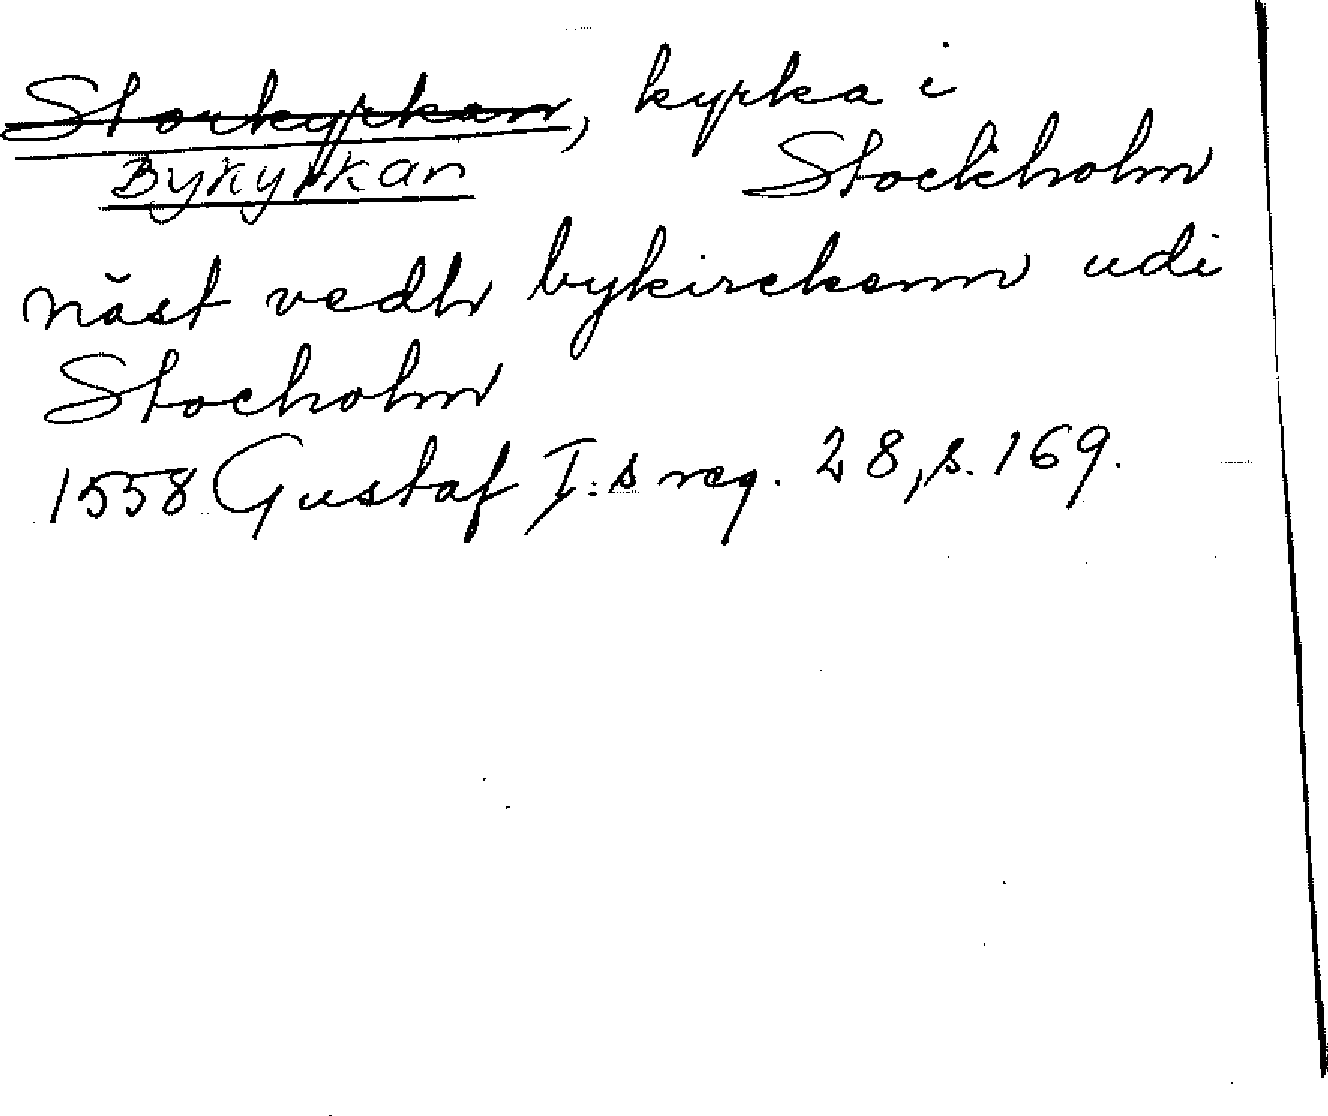 Storkyrkan, kyrka i
Bykyrkan Stockholm
näst vedh bykirckenn udi
Stocholm
1558 Gustaf I:s reg. 28, s. 169.